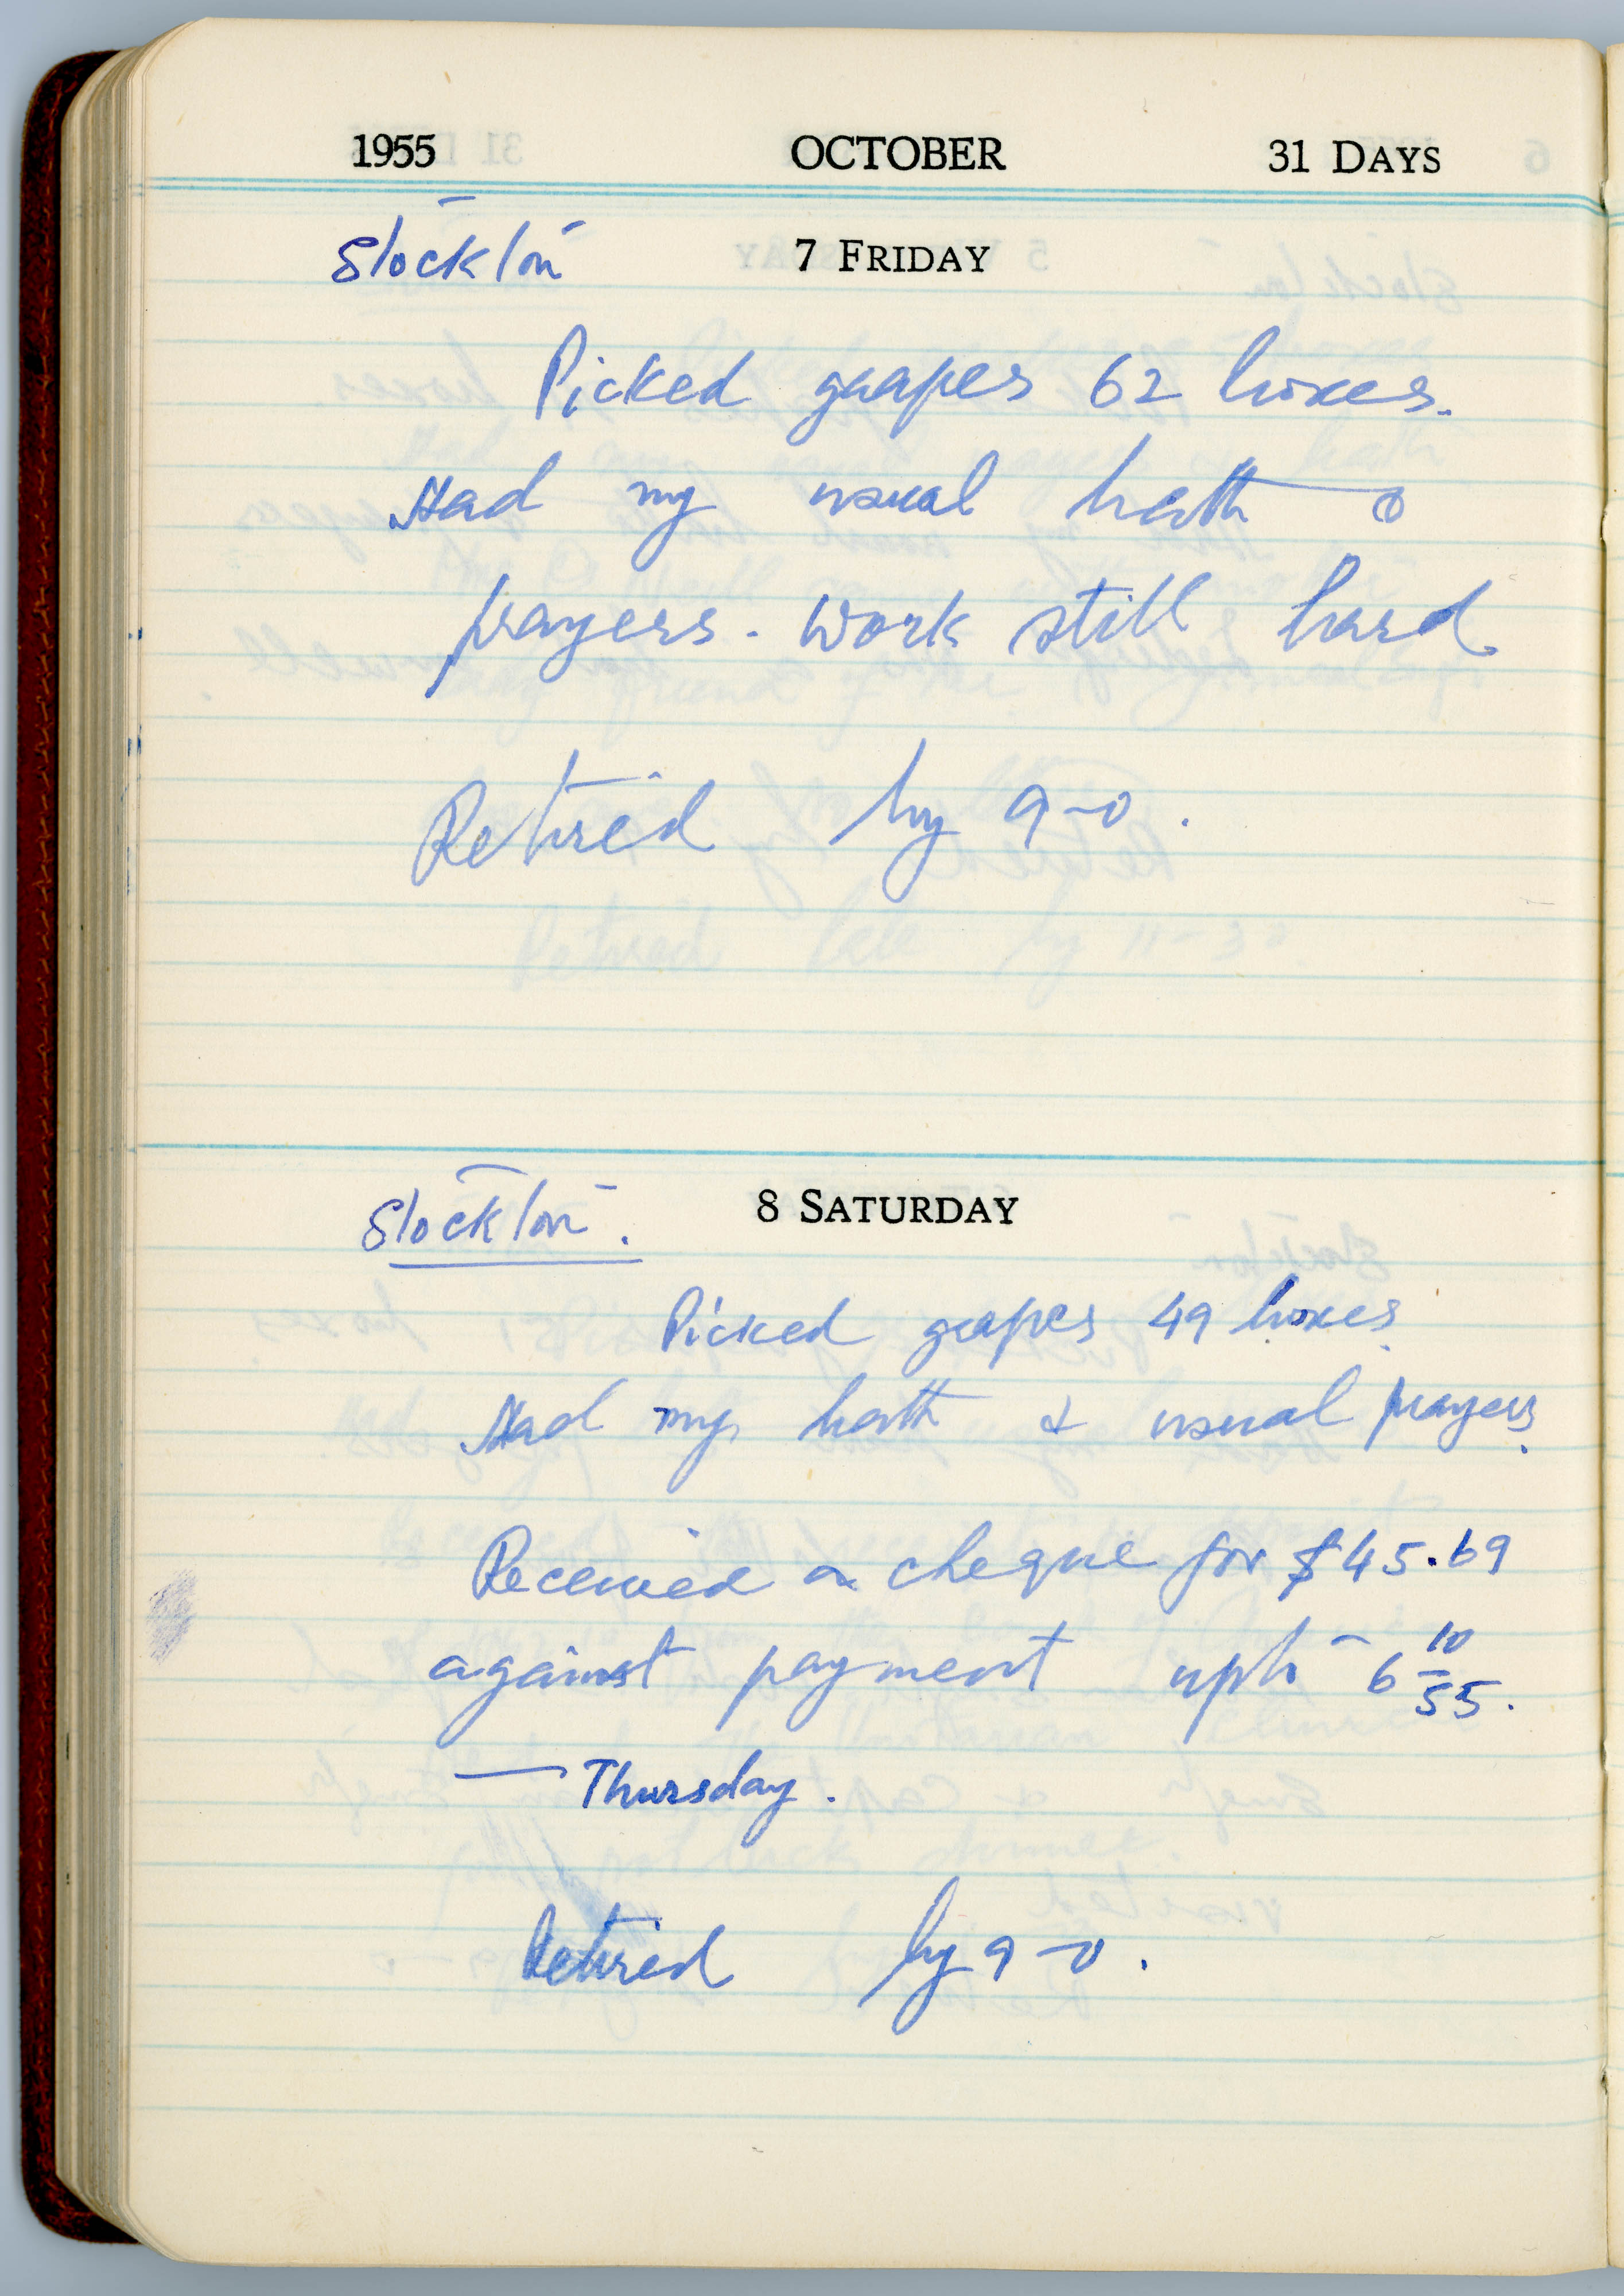 1955 OCTOBER 31 DAYS
Stockton 7 FRIDAY
Picked grapes 62 boxes.
Had my usual bath &
prayers. Work still hard.
Retired by 9-0.
Stockton. 8 SATURDAY
Picked grapes 49 boxes.
Had my bath & usual prayers.
Received a cheque for $45.69
against payment upto 6 10/55.
— Thursday.
Retired by 9-0.